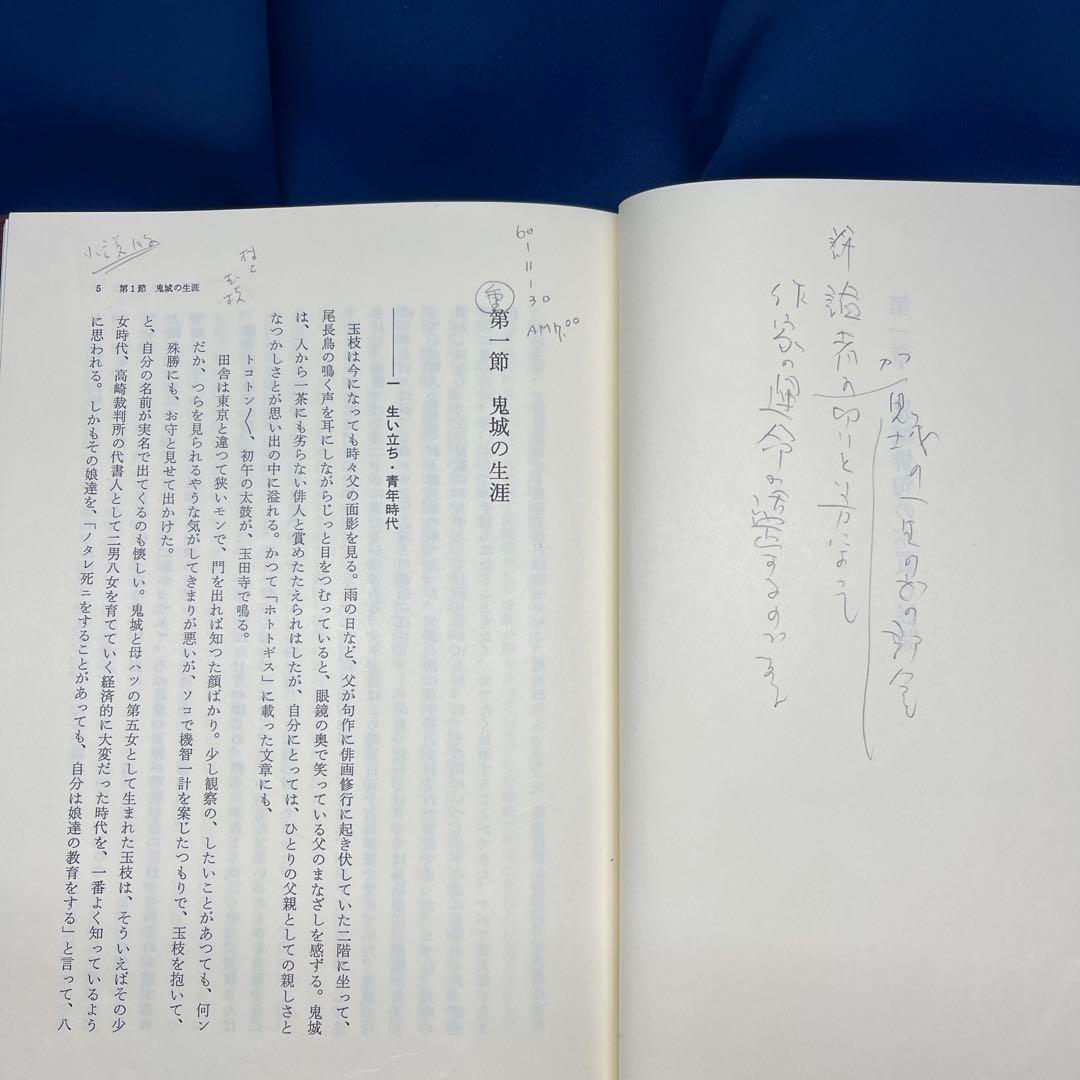 鬼城の一生の
評論者の
によって
作家の運命の
するの
60-11-30
AM7.00
重
第一節 鬼城の生涯
一 生い立ち・青年時代
玉枝は今になっても時々父の面影を見る。雨の日など、父が句作に俳画修行に起き伏していた二階に坐って、
尾長鳥の鳴く声を耳にしながらじっと目をつむっていると、眼鏡の奥で笑っている父のまなざしを感ずる。鬼城
は、人から一茶にも劣らない俳人と賞めたたえられはしたが、自分にとっては、ひとりの父親としての親しさと
なつかしさとが思い出の中に溢れる。かつて「ホトトギス」に載った文章にも、
トコトン〱、初午の太鼓が、玉田寺で鳴る。
田舎は東京と違つて狭いモンで、門を出れば知つた顔ばかり。少し観察の、したいことがあつても、何ン
だか、つらを見られるやうな気がしてきまりが悪いが、ソコで機智一計を案じたつもりで、玉枝を抱いて、
殊勝にも、お守と見せて出かけた。
と、自分の名前が実名で出てくるのも懐しい。鬼城と母ハツの第五女として生まれた玉枝は、そういえばその少
女時代、高崎裁判所の代書人として二男八女を育てていく経済的に大変だった時代を、一番よく知っているよう
に思われる。しかもその娘達を、「ノタレ死ニをすることがあっても、自分は娘達の教育をする」と言って、八
村上
玉枝
小説的
5 第1節 鬼城の生涯